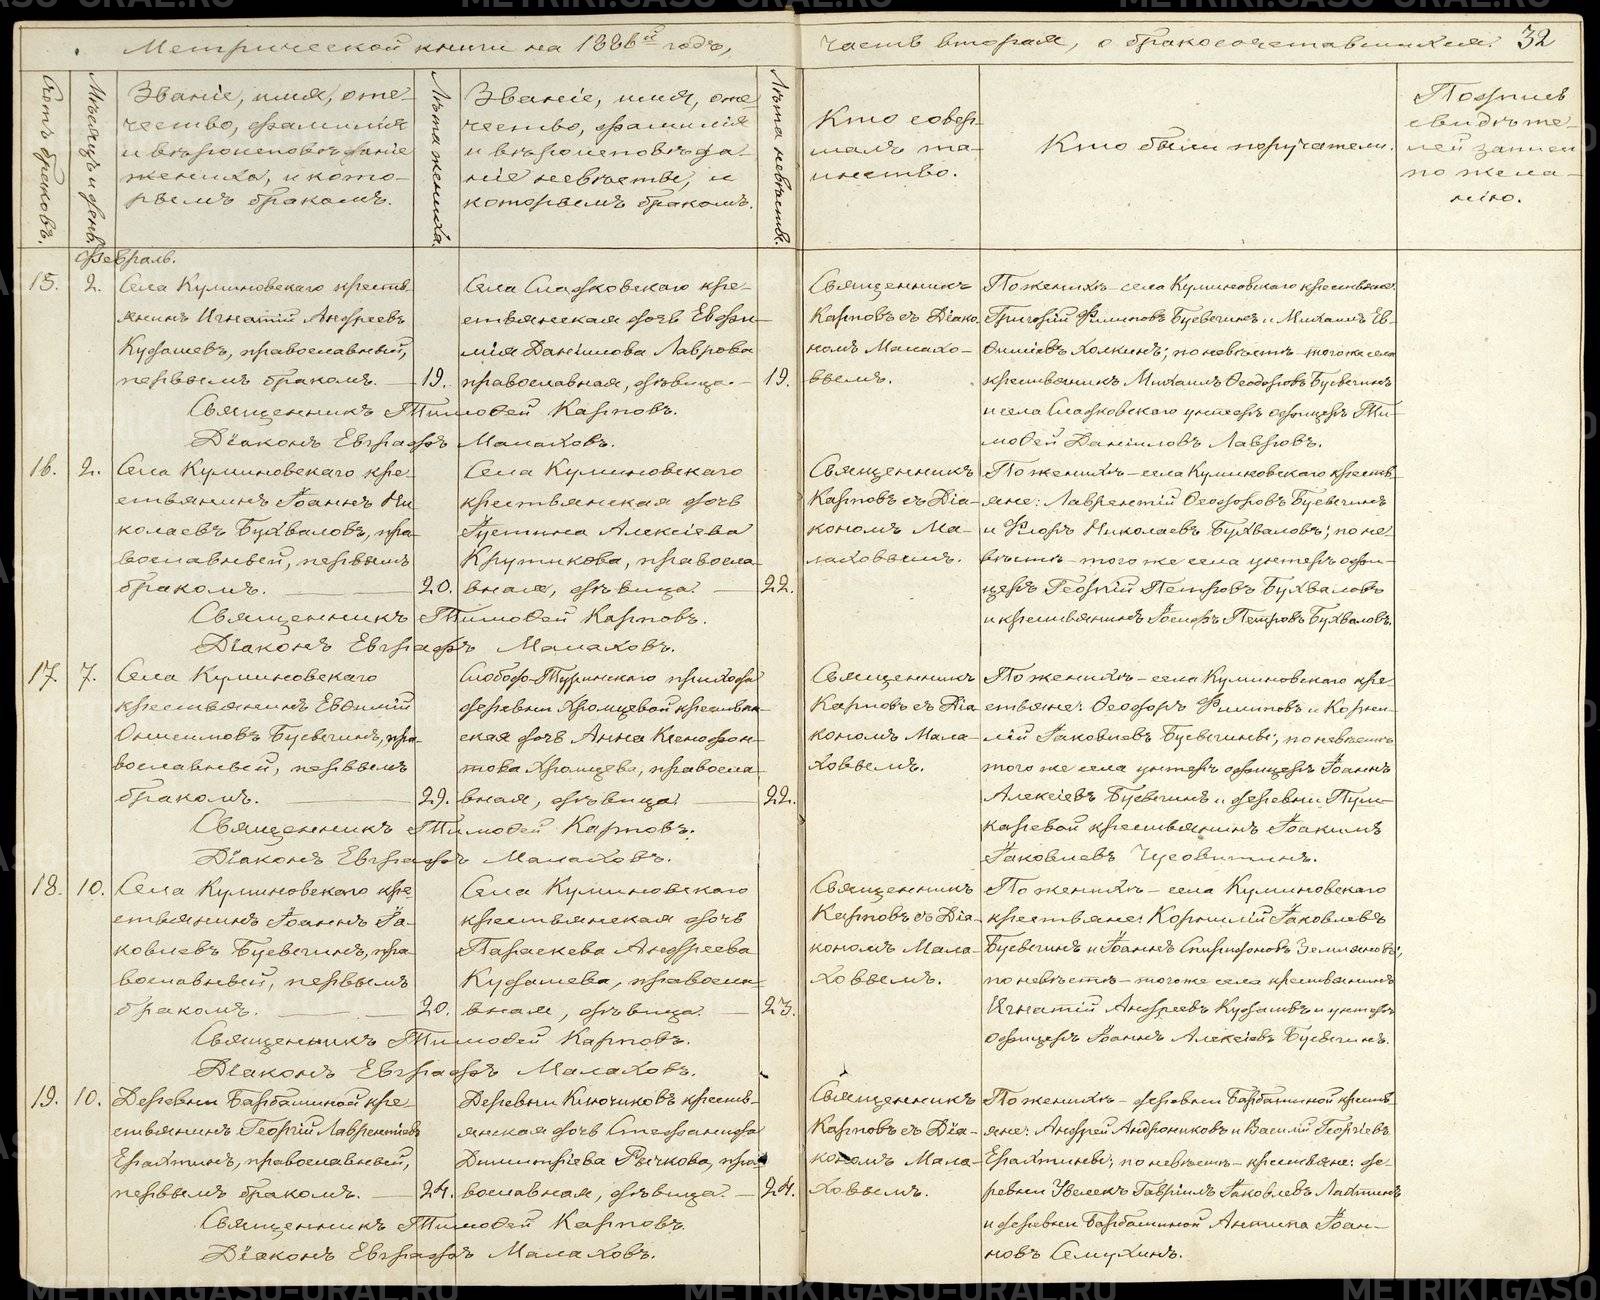 Метрической книги на 1886й годъ,
часть вторая, о бракосочетавшихся. 32
Счетъ браковъ.
Мѣсяцъ и день.
Званіе, имя, оте-
чество, фамилія
и вѣроисповѣданіе
жениха, и кото-
рымъ бракомъ.
Лѣта жениха.
Званіе, имя, оте-
чество, фамилія
и вѣроисповѣда-
ніе невѣсты, и
которымъ бракомъ.
Лѣта невѣсты.
Кто совер-
шалъ та-
инство.
Кто были поручатели.
Подпись
свидѣте-
лей записи
по жела-
нію.
Февраль.
15. 2.
Села Куминовскаго кресть-
янинъ Игнатій Андреевъ
Кудашевъ, православный,
первымъ бракомъ. 19.
Села Сладковскаго кре-
стьянская дочь Евфи-
мія Даніилова Лаврова
православная, дѣвица. 19.
Священникъ
Карповъ съ Діако-
номъ Малахо-
вымъ.
По женихѣ – села Куминовскаго крестьяне:
Григорій Филиповъ Бусыгинъ и Михаилъ Ев-
фиміевъ Холкинъ; по невѣстѣ – того же села
крестьянинъ Михаилъ Ѳеодоровъ Бусыгинъ
и села Сладковскаго унтеръ офицеръ Ти-
моѳей Данииловъ Лавровъ.
Священникъ Тимоѳей Карповъ.
Діаконъ Евграфъ Малаховъ.
16. 2.
Села Куминовскаго кре-
стьянинъ Іоаннъ Ни-
колаевъ Бухваловъ, пра-
вославный, первымъ
бракомъ. 20.
Села Куминовскаго
крестьянская дочь
Іустина Алексіева
Крутикова, правосла-
вная, дѣвица. 22.
Священникъ
Карповъ съ Діа-
кономъ Ма-
лаховымъ.
По женихѣ – села Куминовскаго кресть-
яне: Лаврентій Ѳеодоровъ Бусыгинъ
и Флоръ Николаевъ Бухваловъ; по не-
вѣстѣ – того же села унтеръ офи-
церъ Георгій Петровъ Бухваловъ
и крестьянинъ Іосифъ Петровъ Бухваловъ.
Священникъ Тимоѳей Карповъ.
Діаконъ Евграфъ Малаховъ.
17. 7.
Села Куминовскаго
крестьянинъ Евѳимій
Онисимовъ Бусыгинъ, пра-
вославный, первымъ
бракомъ. 29.
Слободо-Туринскаго прихода
деревни Хромцевой крестьян-
ская дочь Анна Ксенофон-
това Хромцева, правосла-
вная, дѣвица. 22.
Священникъ
Карповъ съ Діа-
кономъ Мала-
ховымъ.
По женихѣ – села Куминовскаго кре-
стьяне: Ѳеодоръ Филиповъ и Корни-
лій Іаковлевъ Бусыгины; по невѣстѣ
того же села унтеръ офицеръ Іоаннъ
Алексіевъ Бусыгинъ и деревни
каревой крестьянинъ Іоакимъ
Іаковлевъ Чусовитинъ.
Священникъ Тимоѳей Карповъ.
Діаконъ Евграфъ Малаховъ.
18. 10.
Села Куминовскаго кре-
стьянинъ Іоаннъ Іа-
ковлевъ Бусыгинъ, пра-
вославный, первымъ
бракомъ. 20.
Села Куминовскаго
крестьянская дочь
Параскева Андреева
Кудашева, правосла-
вная, дѣвица. 23.
Священникъ
Карповъ съ Діа-
кономъ Мала-
ховымъ.
По женихѣ – села Куминовскаго
крестьяне: Корнилій Іаковлевъ
Бусыгинъ и Іоаннъ Спиридоновъ Земляновъ;
по невѣстѣ – того же села крестьянинъ
Игнатій Андреевъ Кудашевъ и унтеръ
офицеръ Іоаннъ Алексіевъ Бусыгинъ.
Священникъ Тимоѳей Карповъ.
Діаконъ Евграфъ Малаховъ.
19. 10.
Деревни Барбашиной кре-
стьянинъ Георгій Лаврентіевъ
Ерахтинъ, православный,
первымъ бракомъ. 24.
Деревни Ключиковъ кресть-
янская дочь Стефанида
Димитріева Рычкова, пра-
вославная, дѣвица. 24.
Священникъ
Карповъ съ Діа-
кономъ Мала-
ховымъ.
По женихѣ – деревни Барбашиной кресть-
яне: Андрей Андрониковъ и Василій Георгіевъ
Ерахтины; по невѣстѣ – крестьяне: де-
ревни Гавріилъ Іаковлевъ Лахтинъ
и деревни Барбашиной Антипа Іоан-
новъ Семухинъ.
Священникъ Тимоѳей Карповъ.
Діаконъ Евграфъ Малаховъ.
METRIKI.GASO-URAL.RU